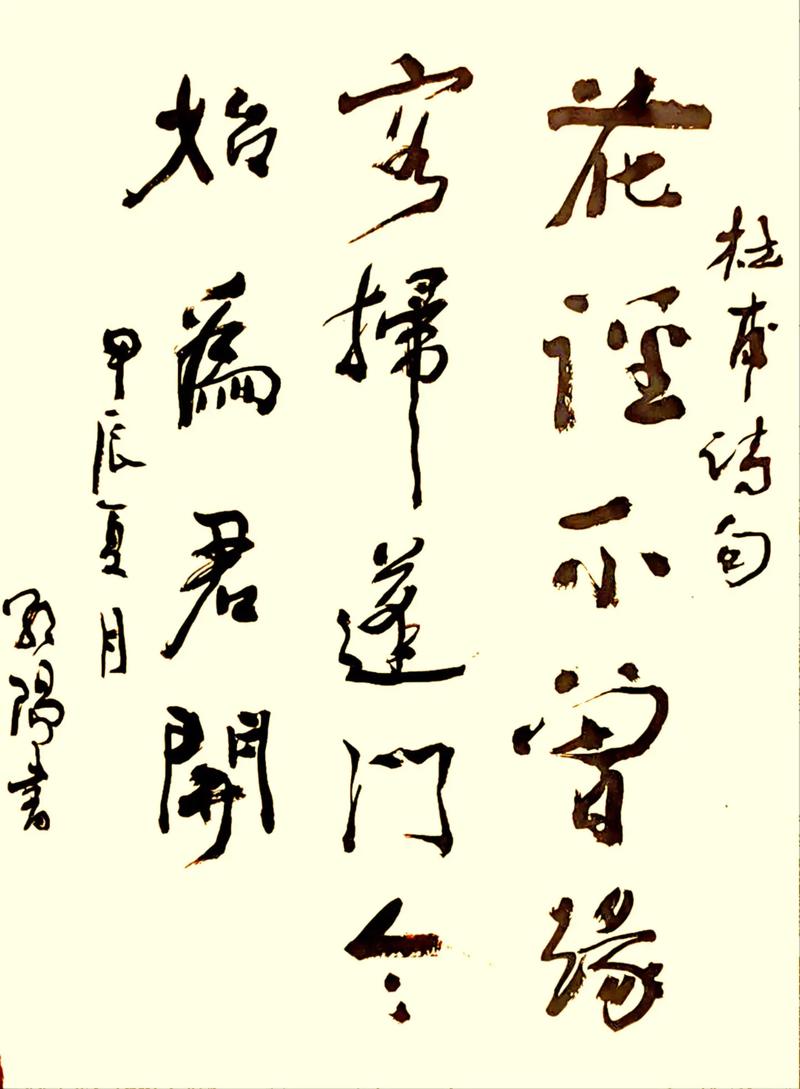 杜甫诗句
花径不曾缘
客掃蓬门今
始為君開
甲辰夏月
陽書